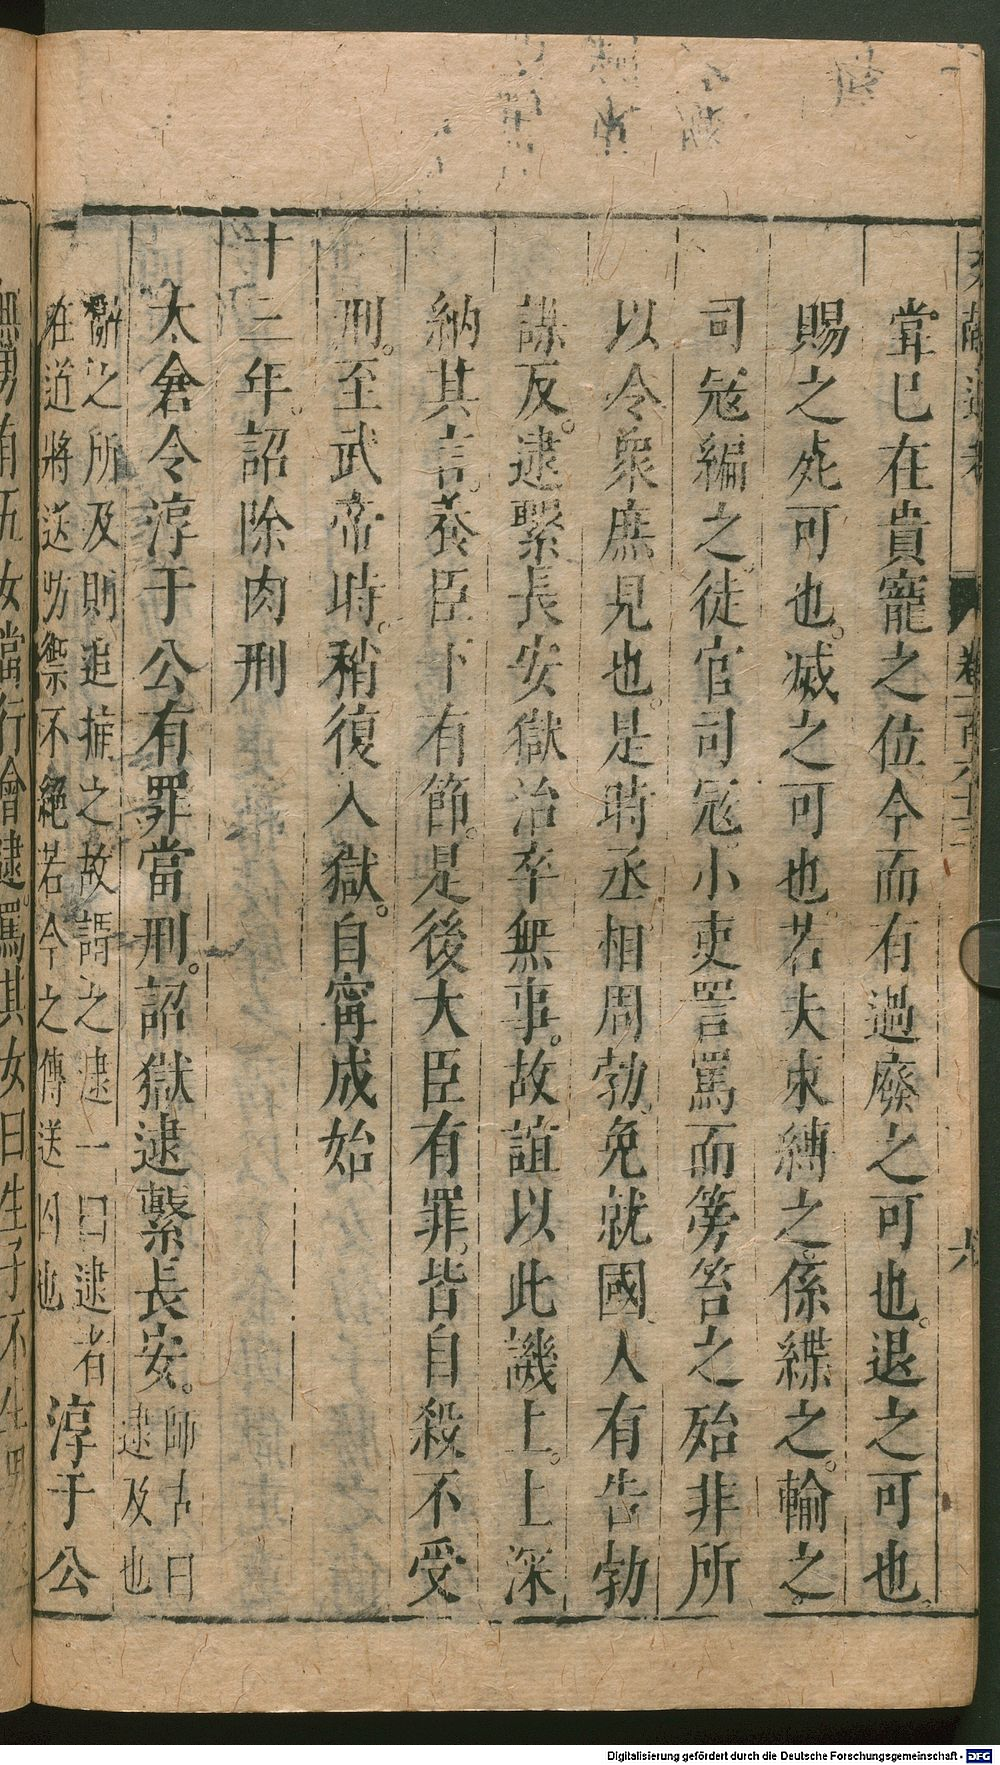 甞巳在貴寵之位今而有過廢之可也。退之可也。
賜之死可也。滅之可也。若夫束縛之。係緤之。輸之。
司寇編之。徒官司寇。小吏詈罵而篣笞之殆非所
以令衆庶見也。是時丞相周勃。免就國人有告勃
謀反。逮繫長安獄治卒無事。故誼以此譏上。上深
納其言。養臣下有節。是後大臣有罪。皆自殺不受
刑。至武帝時。稍復入獄。自甯成始
十三年。詔除肉刑
太倉令淳于公有罪當刑。詔獄逮繫長安。師古曰逮及也
辭之所及則追捕之故謂之逮一曰逮者
在道將送防禦不絕若今之傳送囚也 淳于公
無男有五女當行會逮。罵其女曰生子不生男
卷一百六十三
Digitalisierung gefördert durch die Deutsche Forschungsgemeinschaft - DFG